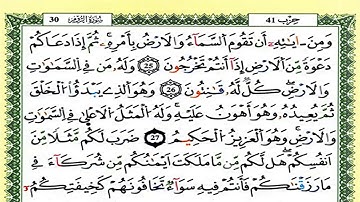 30 سُورَةُ الرُّومِ حِزْب 41
وَمِنَ اٰيَٰتِهِۦٓ أَن تَقُومَ اَ۬لسَّمَآءُ وَالَارْضُ بِأَمْرِهِۦۖ ثُمَّ إِذَا دَعَاكُمْ
دَعْوَةٗ مِّنَ اَ۬لَارْضِ إِذَآ أَنتُمْ تَخْرُجُونَۖ 25 وَلَهُۥ مَن فِے اِ۬لسَّمَٰوَٰتِ
وَالَارْضِۖ كُلّٞ لَّهُۥ قَٰنِتُونَۖ 26 وَهُوَ اَ۬لذِے يَبْدَؤُاْ اُ۬لْخَلْقَ
ثُمَّ يُعِيدُهُۥ وَهُوَ أَهْوَنُ عَلَيْهِۖ وَلَهُ اُ۬لْمَثَلُ اُ۬لَاعْلَىٰ فِے اِ۬لسَّمَٰوَٰتِ
وَالَارْضِۖ وَهُوَ اَ۬لْعَزِيزُ اُ۬لْحَكِيمُۖ 27 ضَرَبَ لَكُم مَّثَلٗا مِّنَ
اَنفُسِكُمْ هَل لَّكُم مِّن مَّا مَلَكَتَ اَيْمَٰنُكُم مِّن شُرَكَآءَ فِے
مَا رَزَقْنَٰكُمْ فَأَنتُمْ فِيهِ سَوَآءٞ تَخَافُونَهُمْ كَخِيفَتِكُمُۥٓ